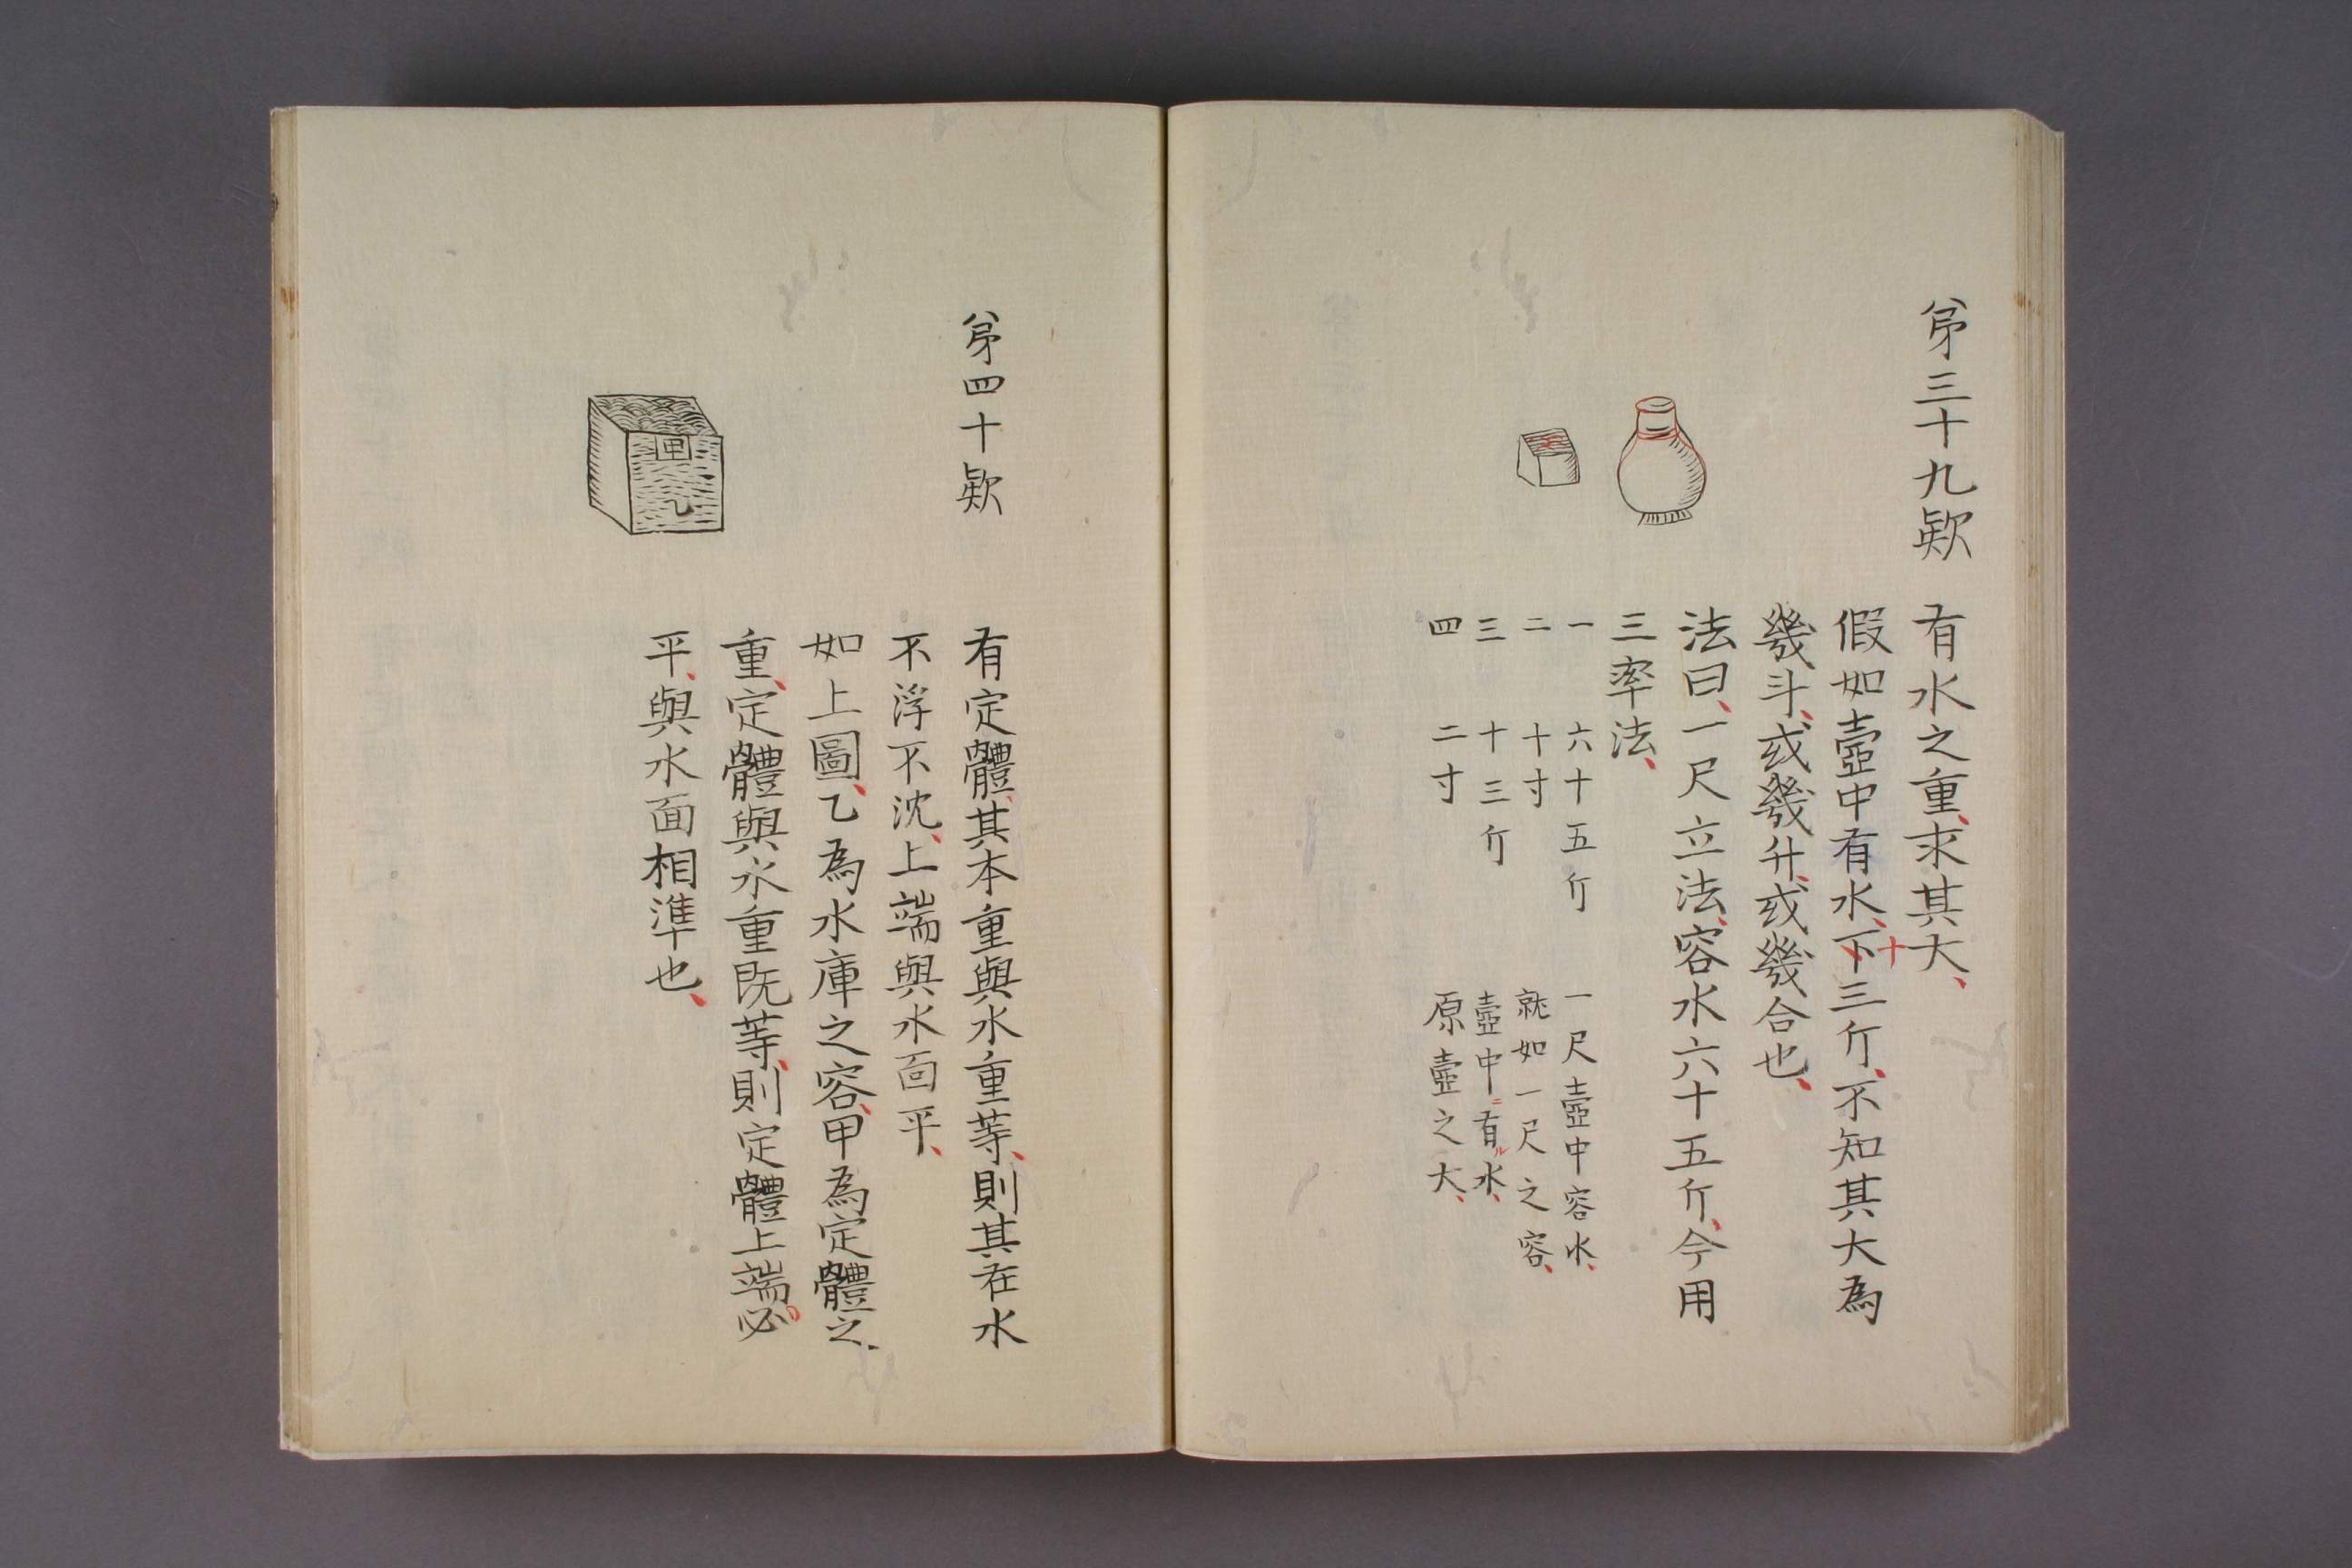 第三十九欵
有水之重、求其大、
假如壺中有水、下十三斤、不知其大為
幾斗、或幾升、或幾合也、
法曰、一尺立法、容水六十五斤、今用
三率法、
一 六十五斤 一尺壺中容水、
二 十寸 就如一尺之容、
三 十三斤 壺中ニ有ル水、
四 二寸 原壺之大、
第四十欵
有定體、其本重與水重等、則其在水
不浮不沈、上端與水面平、
如上圖、乙為水庫之容、甲為定體之
重、定體與水重既等、則定體上端必
平、與水面相準也、
甲
乙